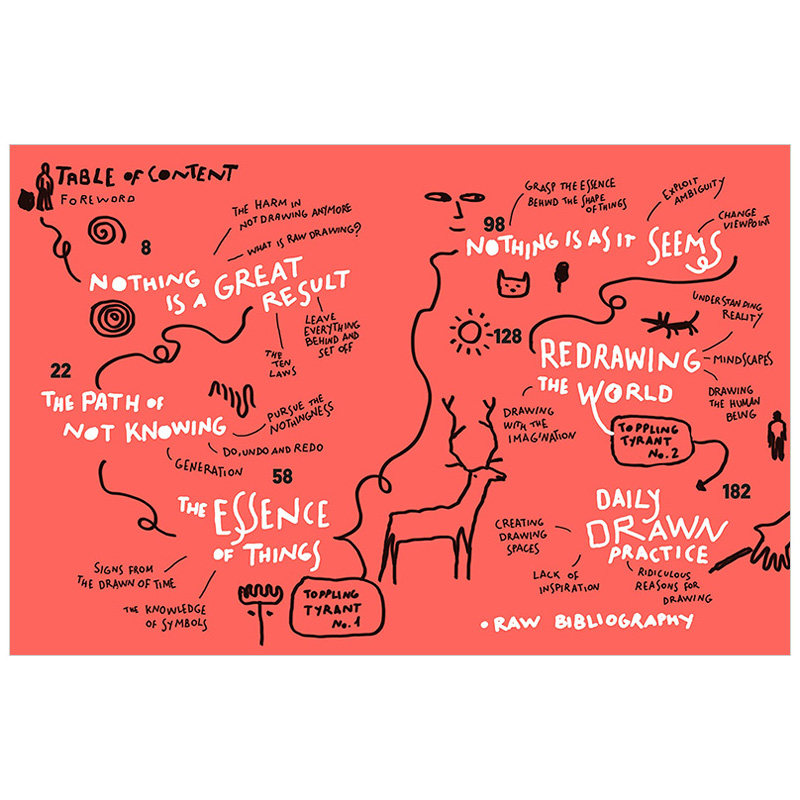 TABLE OF CONTENT
FOREWORD
8
NOTHING
IS A GREAT
RESULT
THE HARM IN
NOT DRAWING ANYMORE
WHAT IS RAW DRAWING?
LEAVE
EVERYTHING
BEHIND AND
SET OFF
THE
TEN
LAWS
22
THE PATH OF
NOT KNOWING
PURSUE THE
NOTHINGNESS
DO, UNDO AND REDO
GENERATION
58
THE ESSENCE
OF THINGS
SIGNS FROM
THE DRAWN OF TIME
THE KNOWLEDGE
OF SYMBOLS
TOPPLING
TYRANT
No. 1
98
NOTHING IS AS IT SEEMS
GRASP THE ESSENCE
BEHIND THE SHAPE
OF THINGS
EXPLOIT
AMBIGUITY
CHANGE
VIEWPOINT
128
REDRAWING
THE WORLD
UNDERSTANDING
REALITY
MINDSCAPES
DRAWING
THE HUMAN
BEING
DRAWING
WITH THE
IMAGINATION
TOPPLING
TYRANT
No. 2
182
DAILY
DRAWN
PRACTICE
CREATING
DRAWING
SPACES
LACK OF
INSPIRATION
RIDICULOUS
REASONS FOR
DRAWING
• RAW BIBLIOGRAPHY